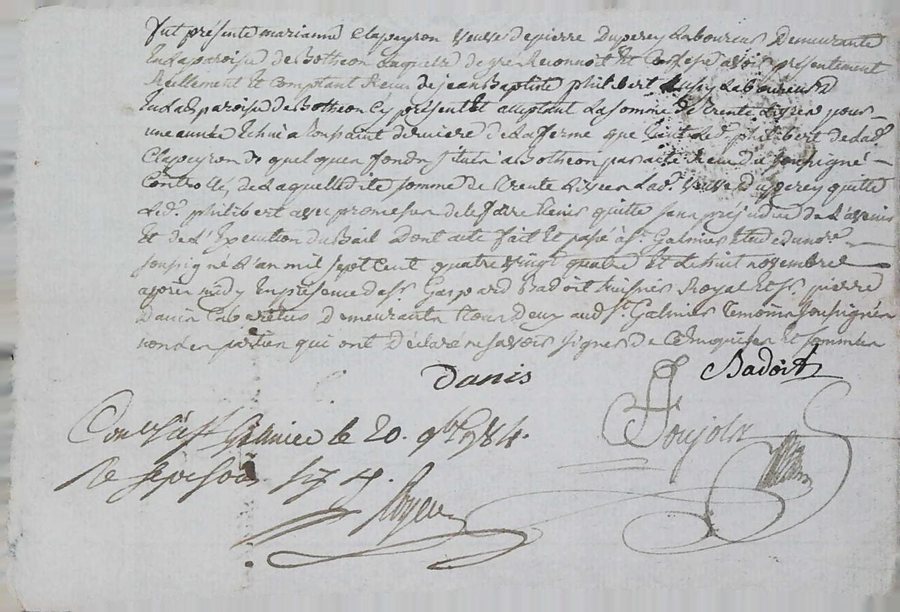 fut présente marianne Clapeyron veuve de pierre Duperey Laboureur Demeurante
En la paroisse de Botheon Laquelle de gré Reconnoit Et Confesse avoir présentement
Reellement Et Comptant Reçu de jean Baptiste philibert aussy Laboureur
En lad. paroisse de Botheon Cy présent Et acceptant La somme de Trente Livres pour
une année Echue a Toussaint derniere de La ferme que tient Led. philibert de lad.
Clapeyron de quelques fonds situés a Botheon par acte Reçu du soussigné
Controllé, de Laquelle dite somme de Trente Livres Lad. veuve Duperey quitte
Led. philibert avec promesse de le faire tenir quitte sans préjudice de L'avenir
Et de L'Execution du Bail Dont acte fait Et passé a St. Galmier Etude du nore.
soussigné L'an mil sept Cent quatre vingt quatre Et Le huit novembre
après midy En présence de sr. Gaspard Badoit huissier Royal Et sr. pierre
Danis Cabaretier Demeurants tous Deux aud. St. Galmier Temoins soussignés
non les parties qui ont Déclaré ne savoir signer de Ce Enquises Et sommées
Danis Badoit
Con à St Galmier le 20. 9bre 1784.
Re